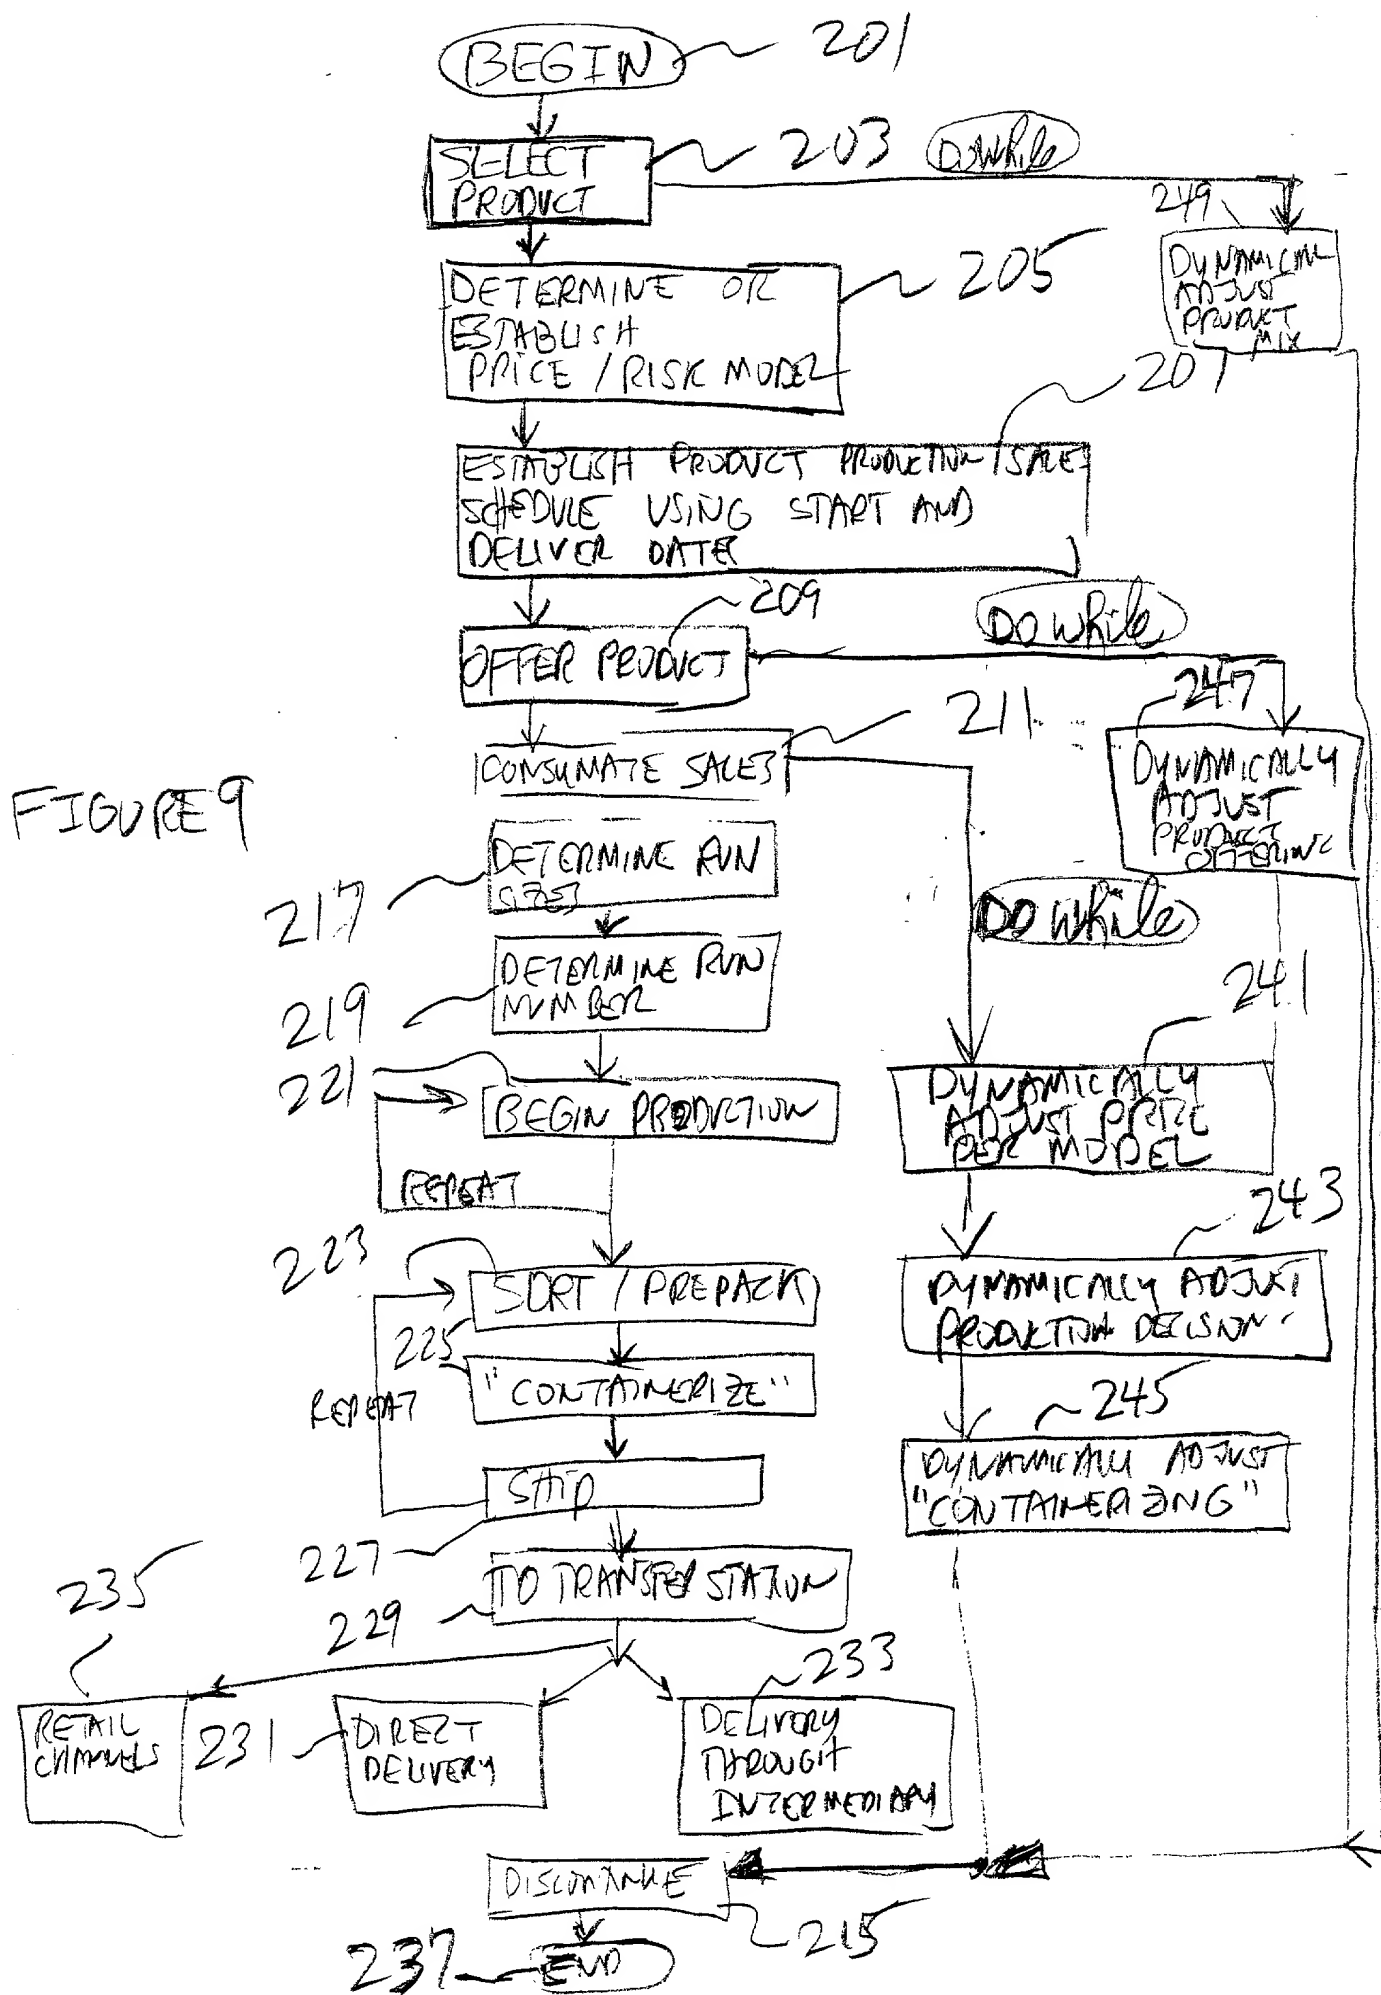 BEGIN
201
SELECT
PRODUCT
203
Do While
249
DYNAMICAL
ADJUST
PRODUCT
MIX
DETERMINE OR
ESTABLISH
PRICE / RISK MODEL
205
207
ESTABLISH PRODUCT PRODUCTION / SALES
SCHEDULE USING START AND
DELIVER DATES
OFFER PRODUCT
209
DO While
247
DYNAMICALLY
ADJUST
PRODUCT
OFFERING
CONSUMATE SALES
211
FIGURE 9
DETERMINE RUN
SIZES
217
DO While
DETERMINE RUN
NUMBER
219
241
221
BEGIN PRODUCTION
REPEAT
DYNAMICALLY
ADJUST PRICE
PER MODEL
243
223
SORT / PREPACK
DYNAMICALLY ADJUST
PRODUCTION DECISION
225
"CONTAINERIZE"
REPEAT
245
SHIP
DYNAMICALLY ADJUST
"CONTAINERIZING"
227
TO TRANSFER STATION
229
235
RETAIL
CHANNELS
231
DIRECT
DELIVERY
233
DELIVERY
THROUGH
INTERMEDIARY
DISCONTINUE
215
237
END